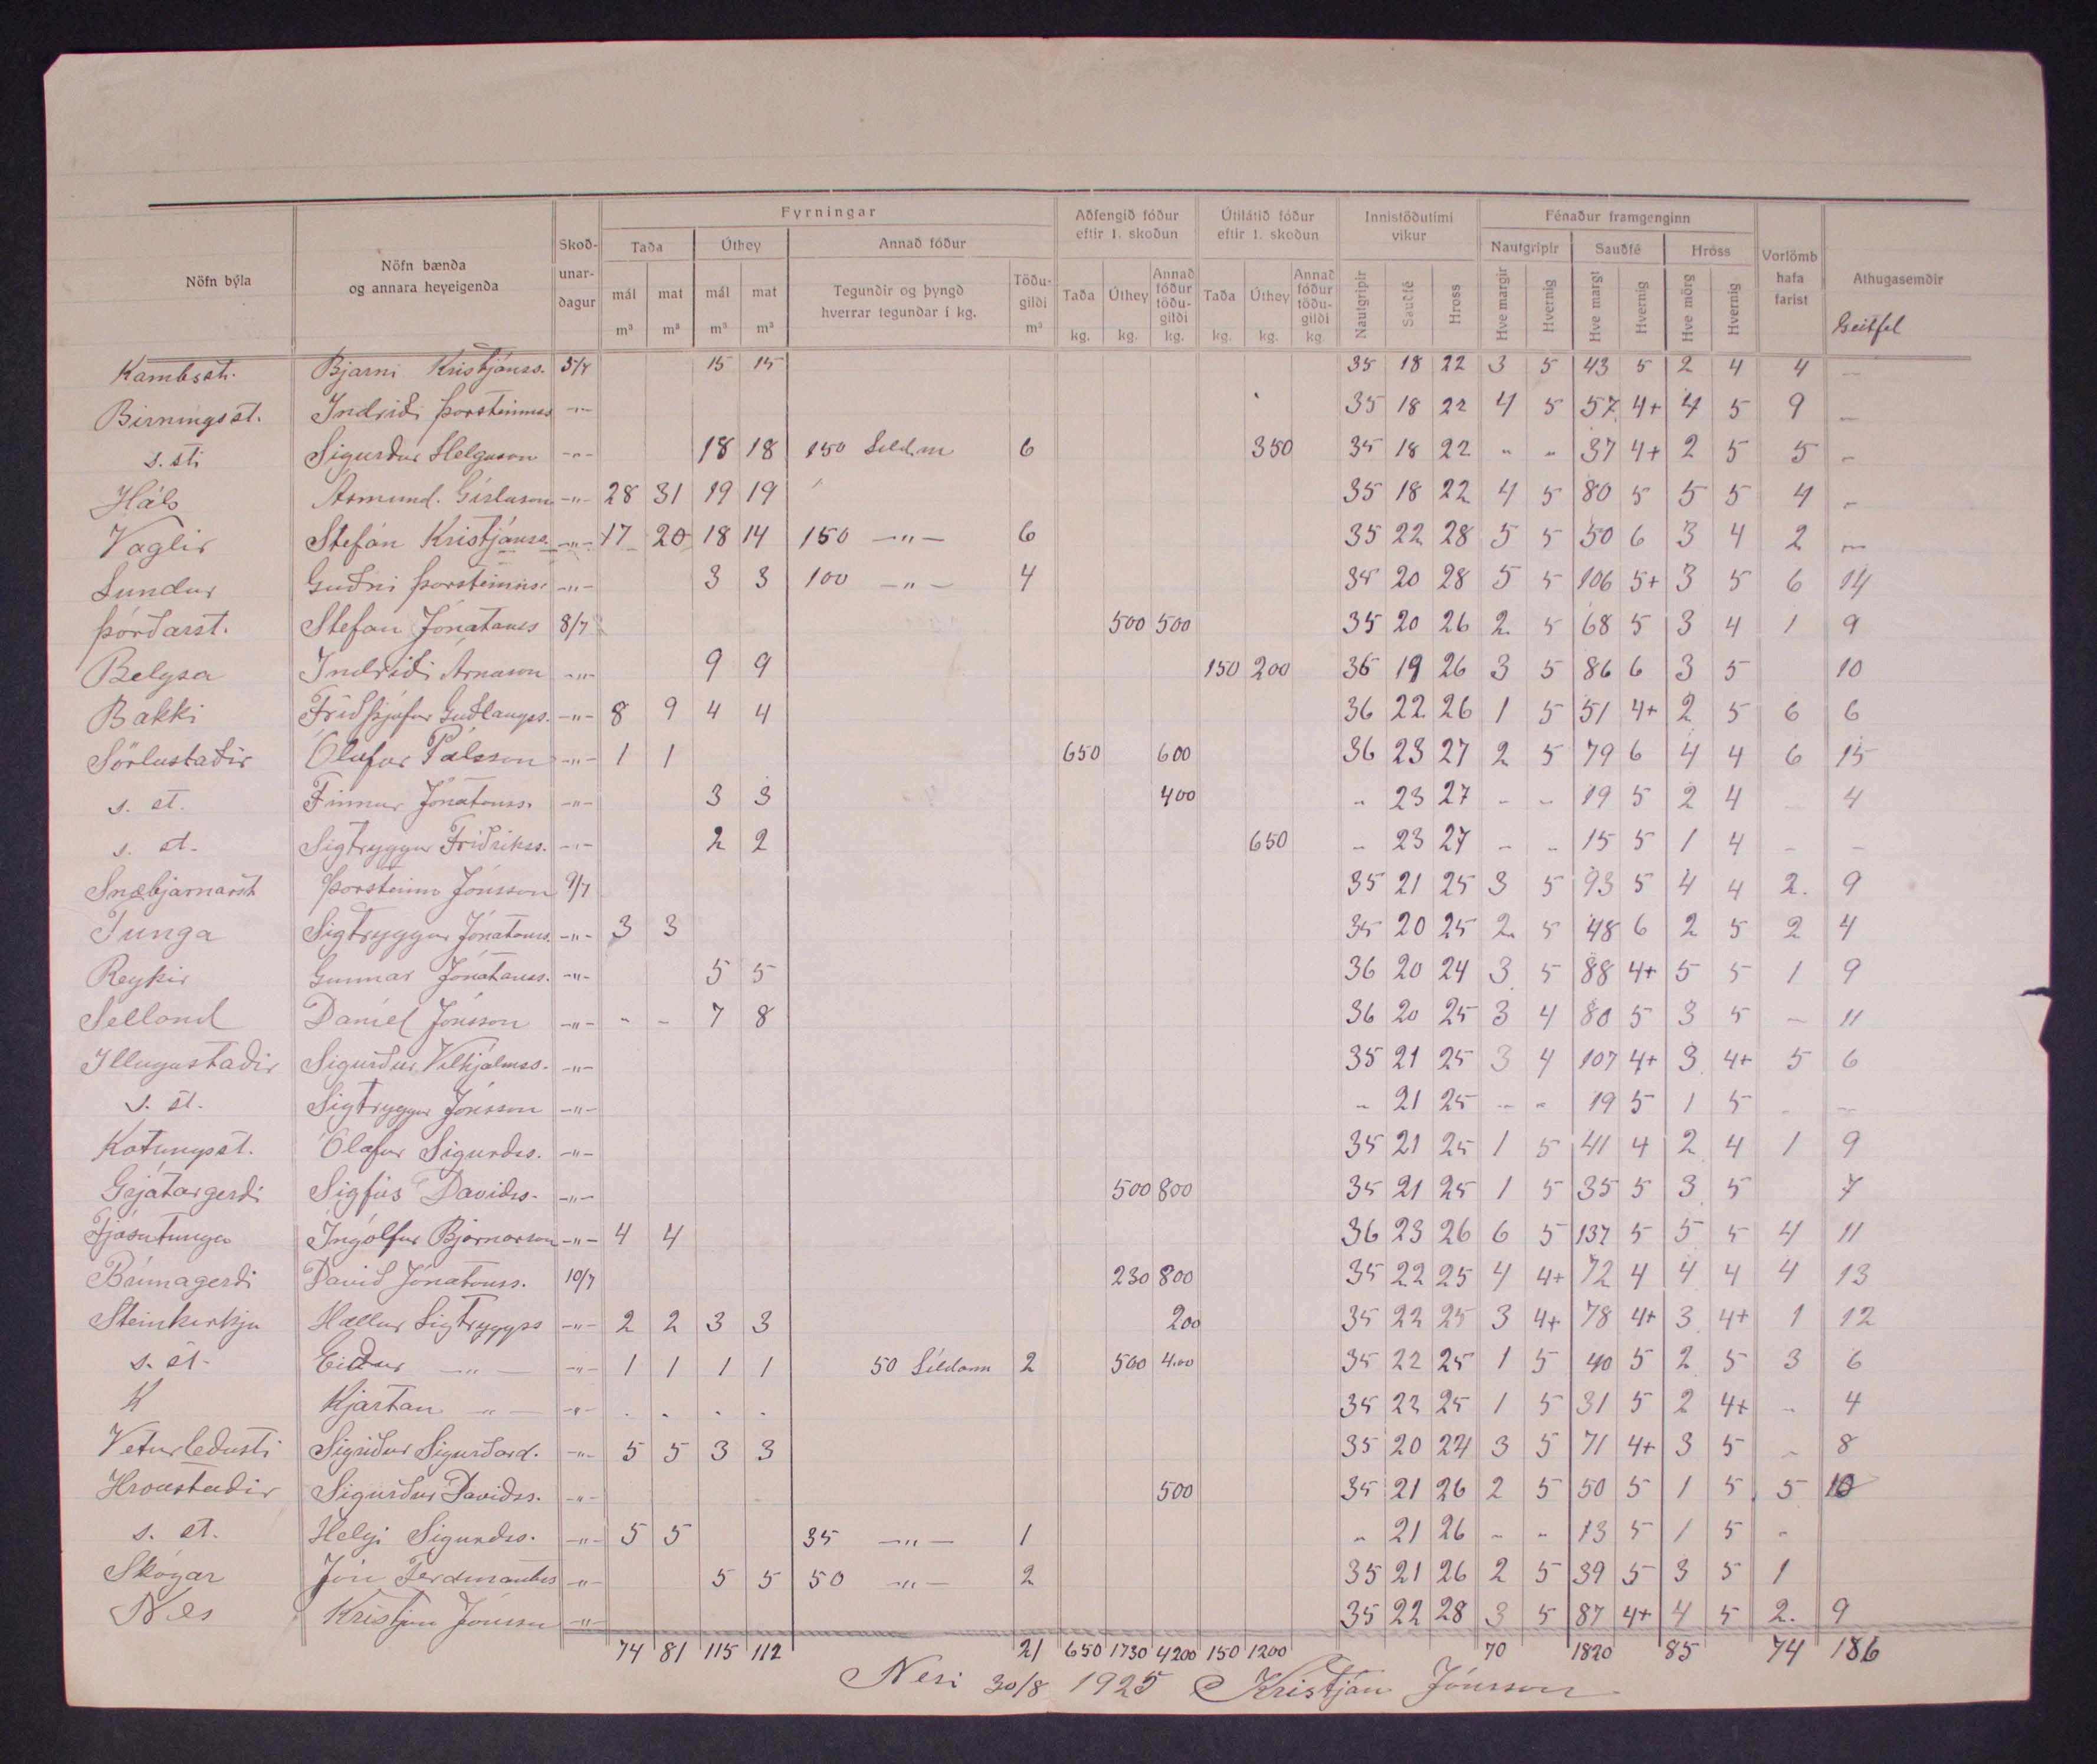 Nöfn býla | Nöfn bænda og annara heyeigenda | Skoð-unar-dagur | Fyrningar | Aðfengið fóður eftir 1. skoðun | Útilátið fóður eftir 1. skoðun | Innistöðutími vikur | Fénaður framgenginn | Vorlömb hafa farist | Athugasemdir
Taða | Úthey | Annað fóður | Nautgripir | Sauðfé | Hross
mál m³ | mat m³ | mál m³ | mat m³ | Tegundir og þyngd hverrar tegundar í kg. | Töðu-gildi m³ | Taða kg. | Úthey kg. | Annað fóður töðu-gildi kg. | Taða kg. | Úthey kg. | Annað fóður töðu-gildi kg. | Nautgripir | Sauðfé | Hross | Hve margir | Hvernig | Hve margt | Hvernig | Hve mörg | Hvernig | Geitfél
Kambsst. Bjarni Kristjánss. 5/7 15 15 35 18 22 3 5 43 5 2 4 4 —
Birningsst. Indriði Þorsteinnss -"- 35 18 22 4 5 57 4+ 4 5 9 —
s. st. Sigurður Helgason -"- 18 18 150 Síldm 6 350 35 18 22 " " 37 4+ 2 5 5 –
Háls Ásmund. Gíslason -"- 28 31 19 19 35 18 22 4 5 80 5 5 5 4 –
Vaglir Stefán Kristjánss. -"- 17 20 18 14 150 —"— 6 35 22 28 5 5 50 6 3 4 2 —
Lundur Guðni Þorsteinss. -"- 3 3 100 —"— 4 35 20 28 5 5 106 5+ 3 5 6 14
Þórðarst. Stefan Jónatanss 8/7 500 500 35 20 26 2 5 68 5 3 4 1 9
Belgsa Indriði Árnason -"- 9 9 150 200 36 19 26 3 5 86 6 3 5 10
Bakki Friðþjófur Guðlaugss. -"- 8 9 4 4 36 22 26 1 5 51 4+ 2 5 6 6
Sörlustaðir Ólafur Pálsson -"- 1 1 650 600 36 23 27 2 5 79 6 4 4 6 15
s. st. Finnur Jónatanss. -"- 3 3 400 " 23 27 - - 19 5 2 4 4
s. st. Sigtryggur Friðrikss. -"- 2 2 650 " 23 27 - - 15 5 1 4 - -
Snæbjarnarst Þorsteinn Jónsson 9/7 35 21 25 3 5 93 5 4 4 2. 9
Tunga Sigtryggur Jónatanss. -"- 3 3 35 20 25 2 5 48 6 2 5 2 4
Reykir Gunnar Jónatanss. -"- 5 5 36 20 24 3 5 88 4+ 5 5 1 9
Selland Daníel Jónsson -"- - - 7 8 36 20 25 3 4 80 5 3 5 — 11
Illugastaðir Sigurður Vilhjálmss. -"- 35 21 25 3 4 107 4+ 3 4+ 5 6
s. st. Sigtryggur Jónsson -"- " 21 25 - - 19 5 1 5 - -
Kotungsst. Ólafur Sigurdss. -"- 35 21 25 1 5 41 4 2 4 1 9
Grjótargerði Sigfús Davidss. -"- 500 800 35 21 25 1 5 35 5 3 5 7
Fjósatunga Ingólfur Bjarnarson -"- 4 4 36 23 26 6 5 137 5 5 5 4 11
Brúnagerði Davið Jónatanss. 10/7 230 800 35 22 25 4 4+ 72 4 4 4 4 13
Steinkirkja Hallur Sigtryggss -"- 2 2 3 3 200 35 22 25 3 4+ 78 4+ 3 4+ 1 12
s. st. Eiður —"— -"- 1 1 1 1 50 Síldam 2 500 400 35 22 25 1 5 40 5 2 5 3 6
K Kjartan —"— -"- . . . . 35 22 25 1 5 31 5 2 4+ - 4
Veturledusti Sigríður Sigurðard. -"- 5 5 3 3 35 20 24 3 5 71 4+ 3 5 - 8
Hroastadir Sigurður Davidss. -"- 500 35 21 26 2 5 50 5 1 5 5 10
s. st. Helgi Sigurdss. -"- 5 5 35 —"— 1 " 21 26 - - 13 5 1 5 -
Skógar Jón Ferdinantss -"- 5 5 50 —"— 2 35 21 26 2 5 39 5 3 5 1
Nes Kristján Jónsson -"- 35 22 28 3 5 87 4+ 4 5 2. 9
74 81 115 112 21 650 1730 4200 150 1200 70 1820 85 74 186
Nesi 30/8 1925 Kristján Jónsson